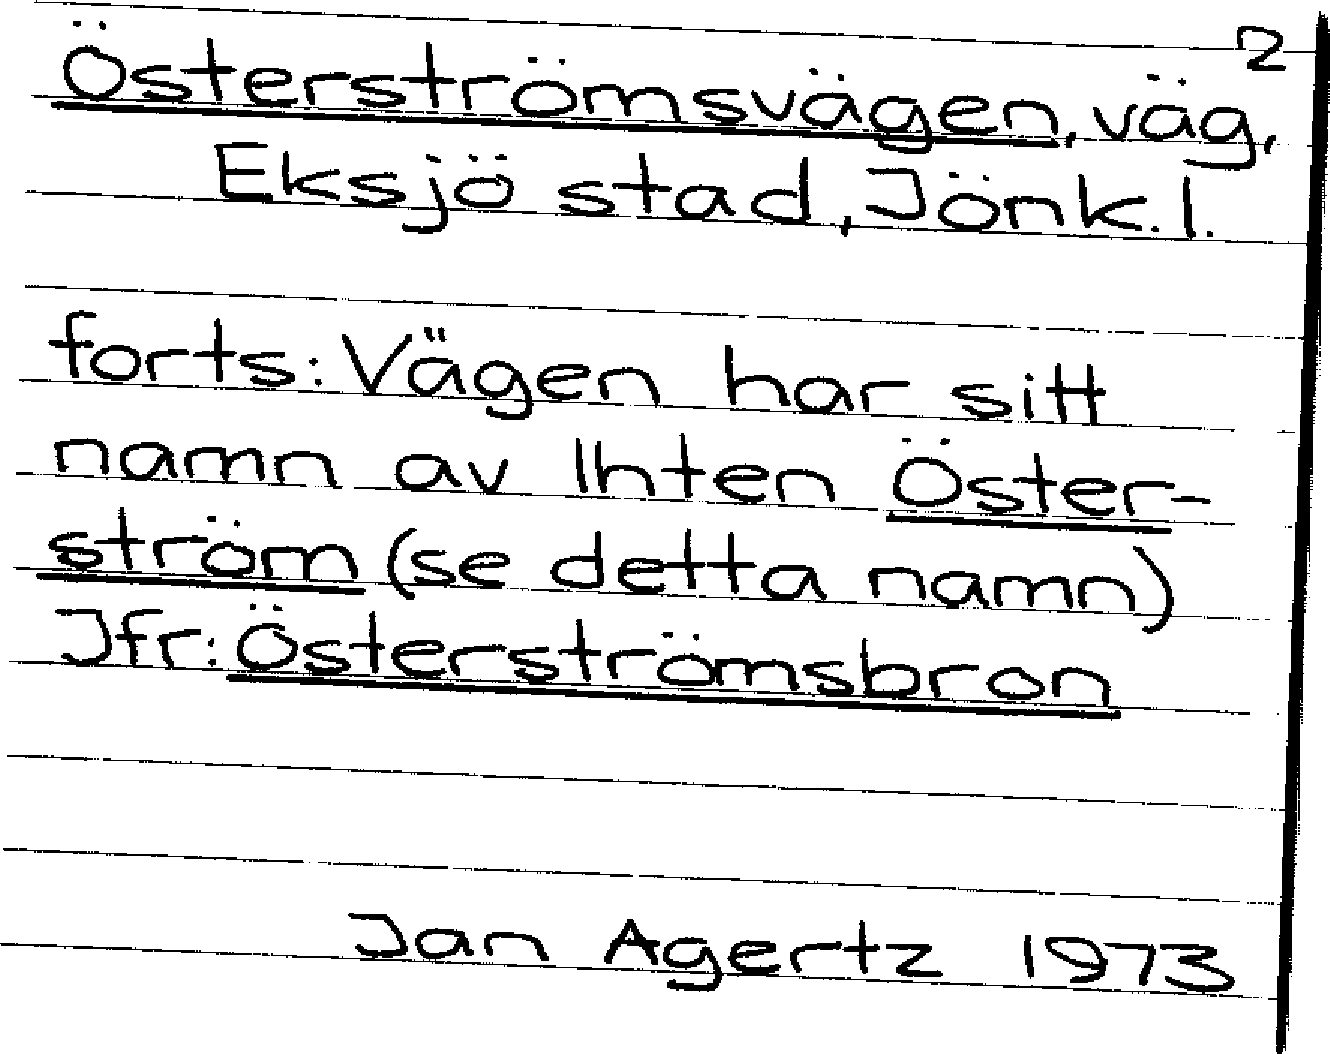 2
Österströmsvägen, väg,
Eksjö stad, Jönk. l.
forts: Vägen har sitt
namn av lhten Öster-
ström (se detta namn)
Jfr: Österströmsbron
Jan Agertz 1973